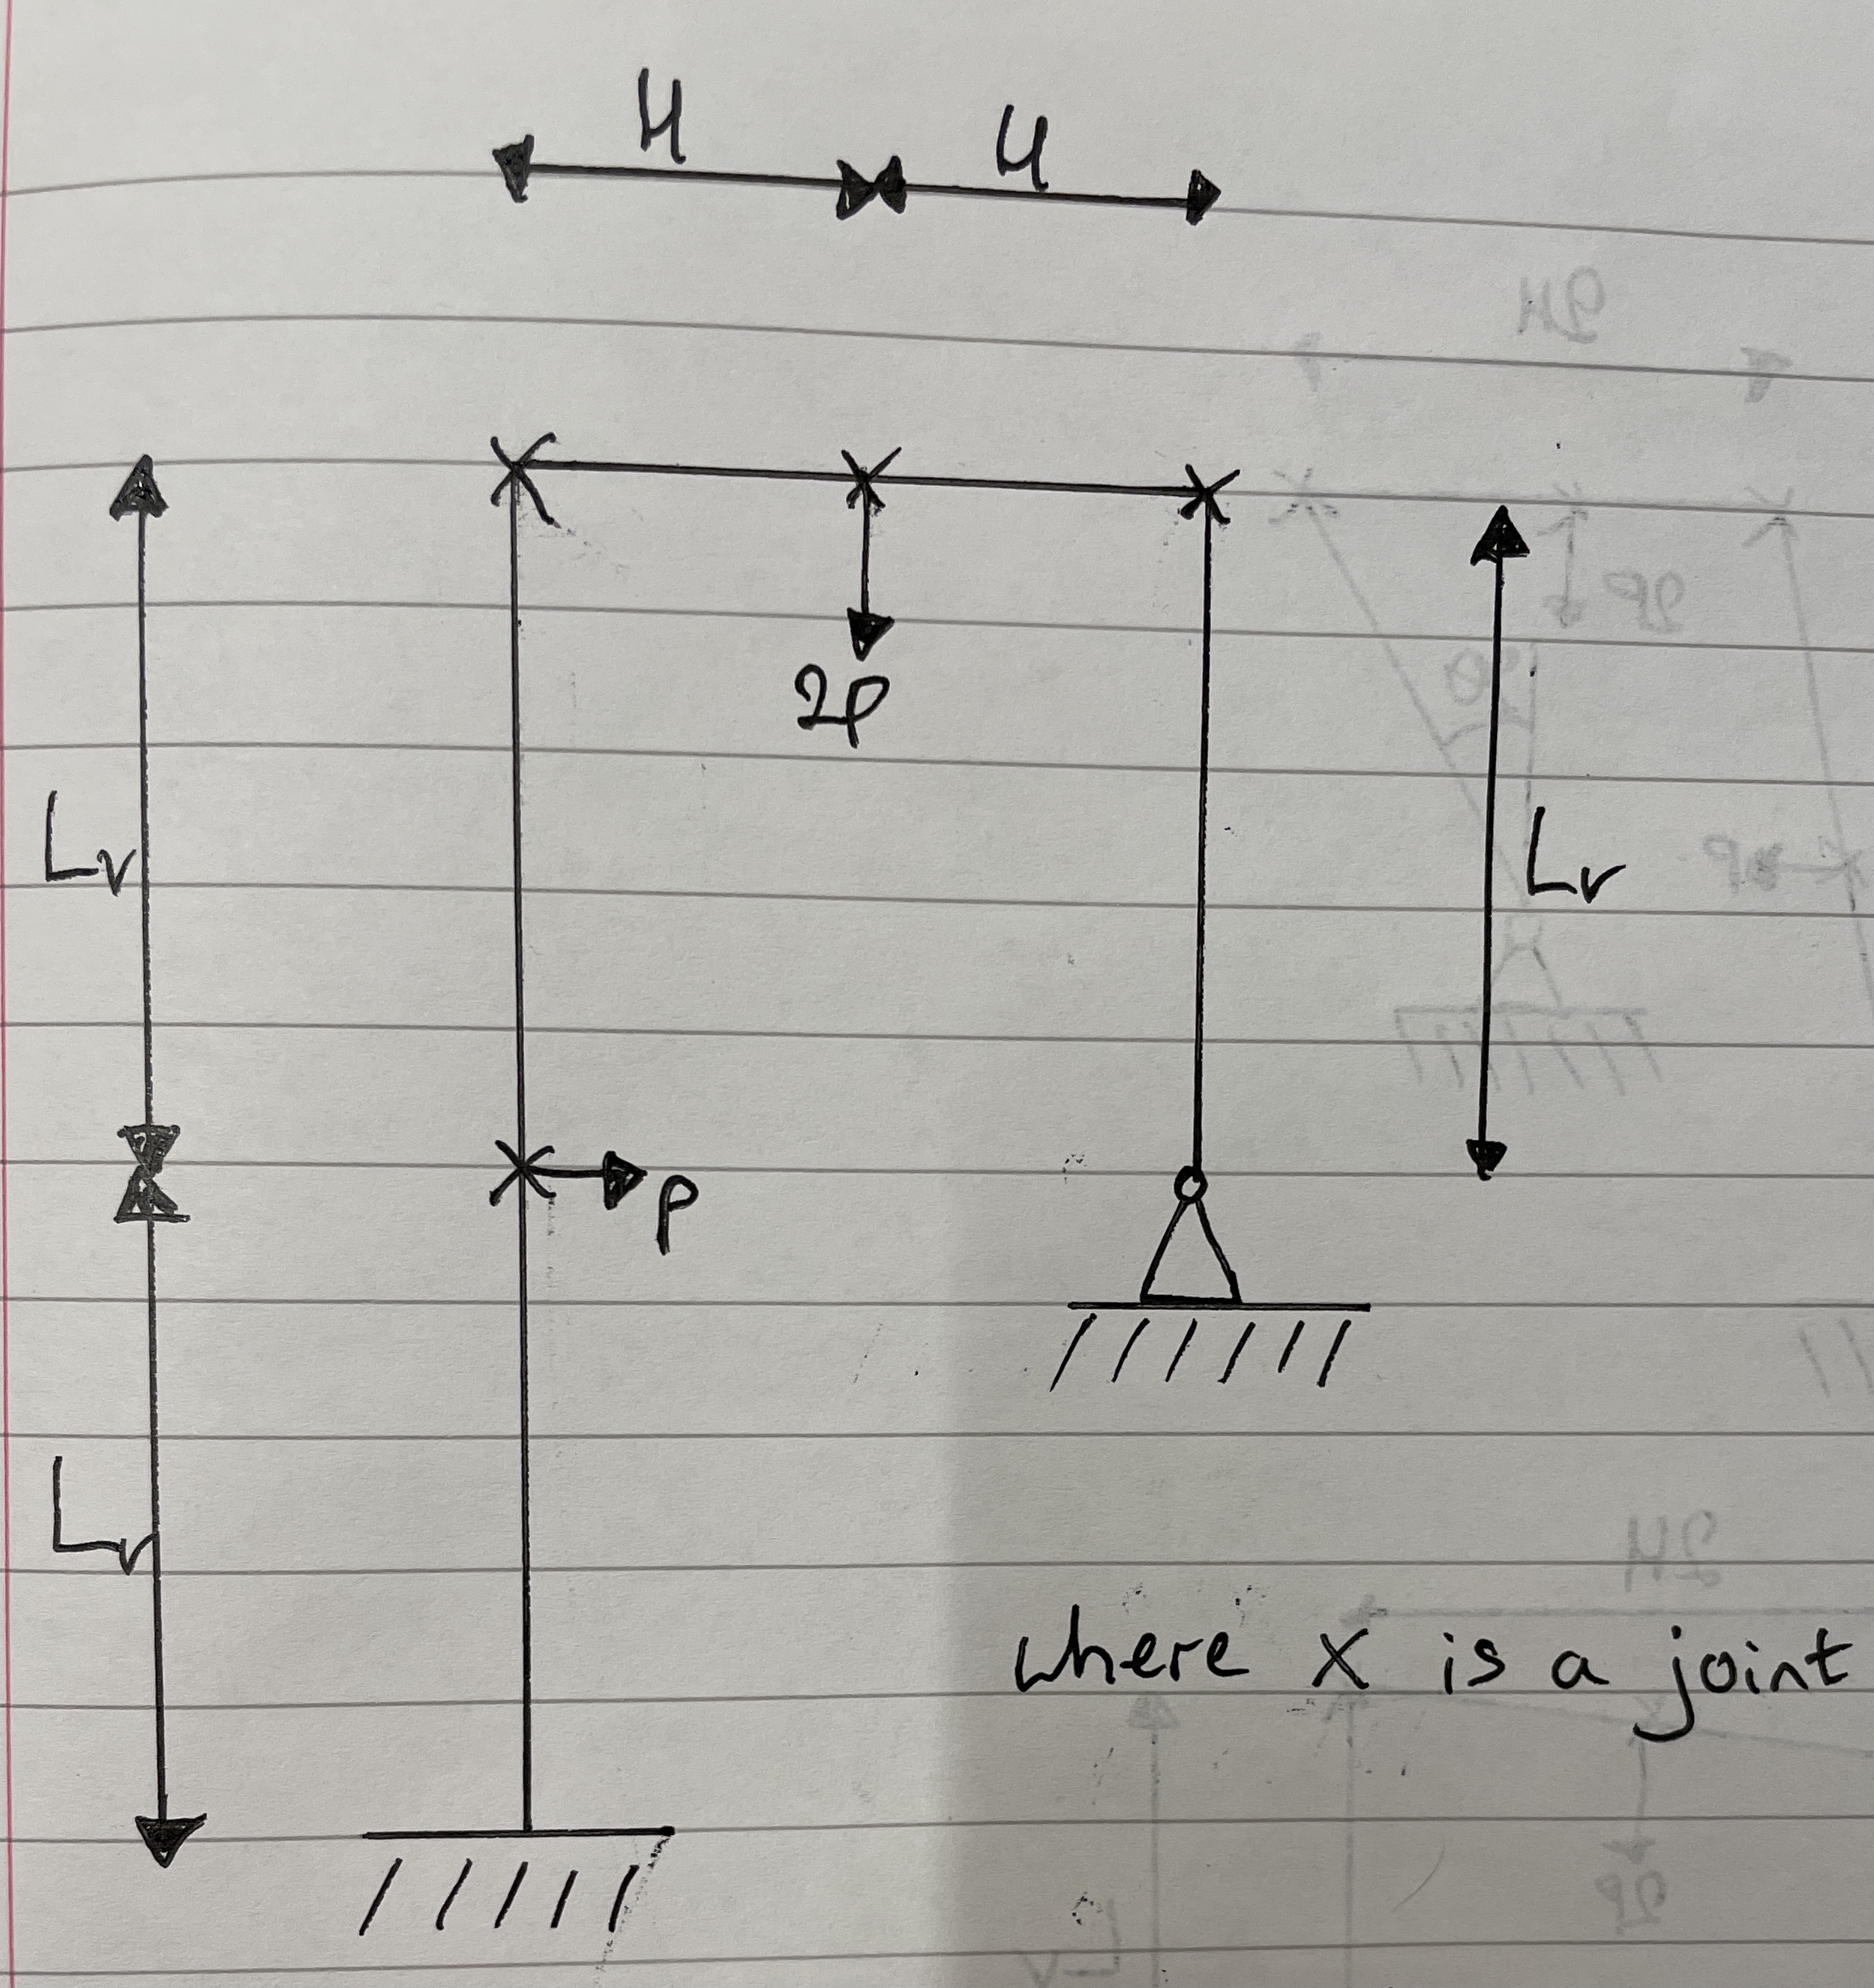 H H
2P
Lv Lv
P
Lv
where X is a joint